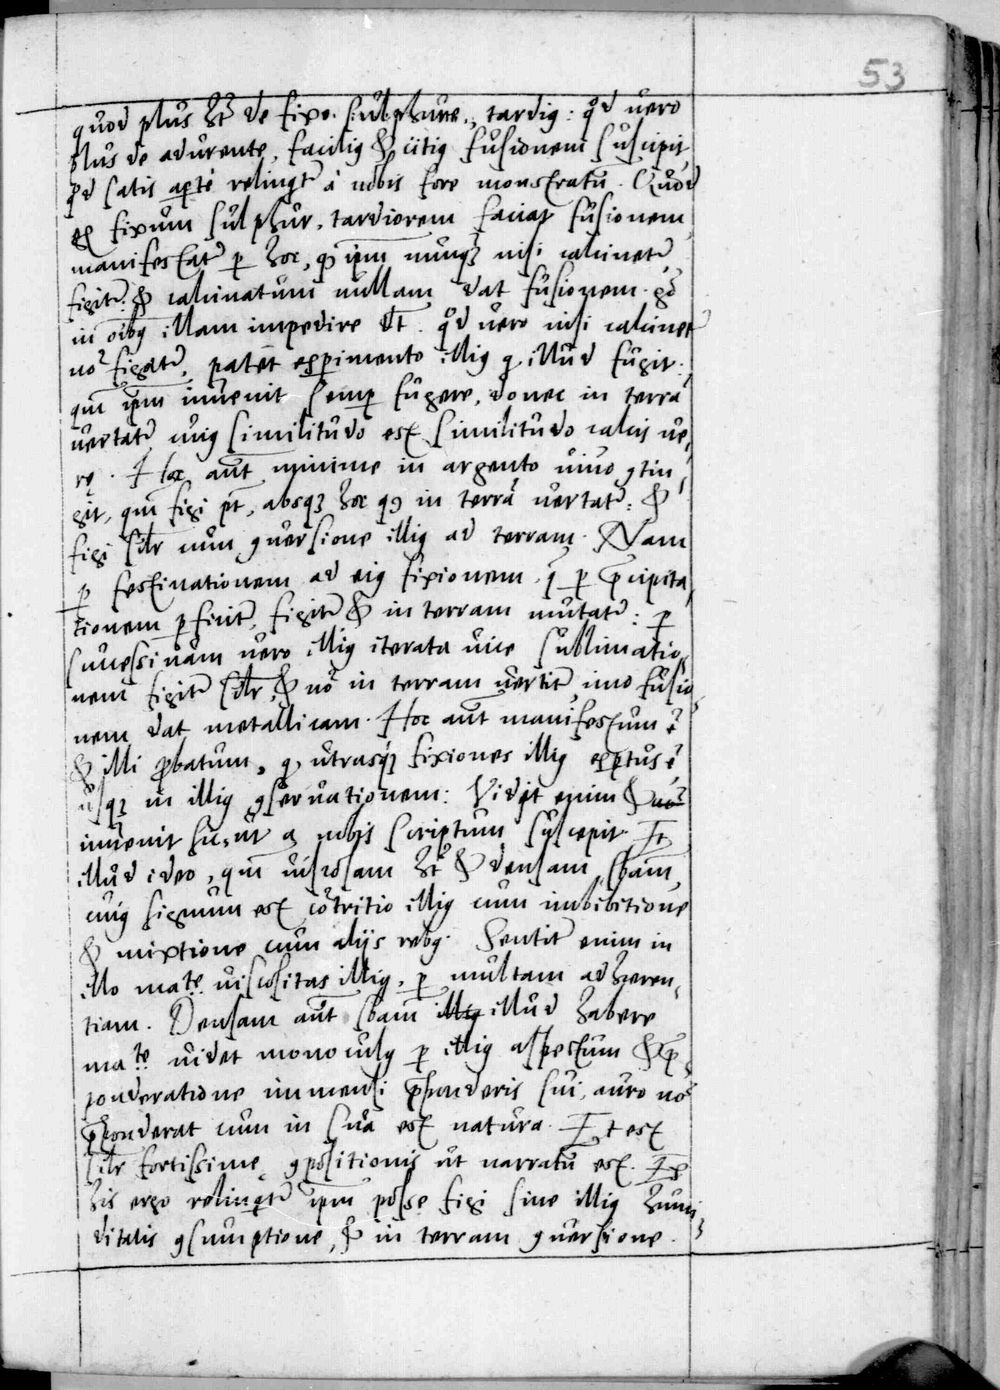 53
quod plus ht de fixo sulphure, tardig : qd vero
plus de adurente, facilig & citig fusionem suscipit
qd satis apte relinqr à nobis fore monstratu. Quod
ex fixum sulphur, tardiorem faciat fusionem,
manifestatr p hoc, q ipm nunqz nisi calcinetr
figitr : & calcinatum nullam dat fusionem . go
in oibg illam impedire dt . qd vero nisi calcinetr
no figatr, patet experimento illig q illud fugit.
qui ipm invenit semp fugere, donec in terra
vertatr cuig similitudo est similitudo calcis ve,
re . Hoc aut minime in argento vivo 9tin,
git, qm figi pt, absqz hoc q in terra vertatr : &
figi silr cum 9versione illig ad terram. Nam
p festinationem ad eig fixionem . q p pcipita,
tionem pficitr, figitr & in terram mutatr : p
successivam vero illig iterata vice sublimatio,
nem figitr silr, & no in terram vertitr, imo fusio,
nem dat metallicam . Hoc aut manifestum e
& illi pbatum, q utrasqz fixiones illig exptus e
usqz in illig 9servationem : Vidit enim &
invenit sic, ut a nobis scriptum suscepit. Et
illud ideo, qm viscosam ht & densam sbam,
cuig signum est cotritio illig cum imbibitione
& mixtione cum alijs rebg . Sentitr enim in
illo mate viscositas illig, p multam adhæren,
tiam . Densam aut sbam illig illud habere
mate videt monoculg p illig aspectum & p
ponderatione immensi pponderis sui, auro no
pponderat cum in sua est natura . Et est
silr fortissime 9positionis ut narratu est. Ex
his ergo relinqtr ipm posse figi sine illig humi,
ditatis 9sumptione, & in terram 9versione.